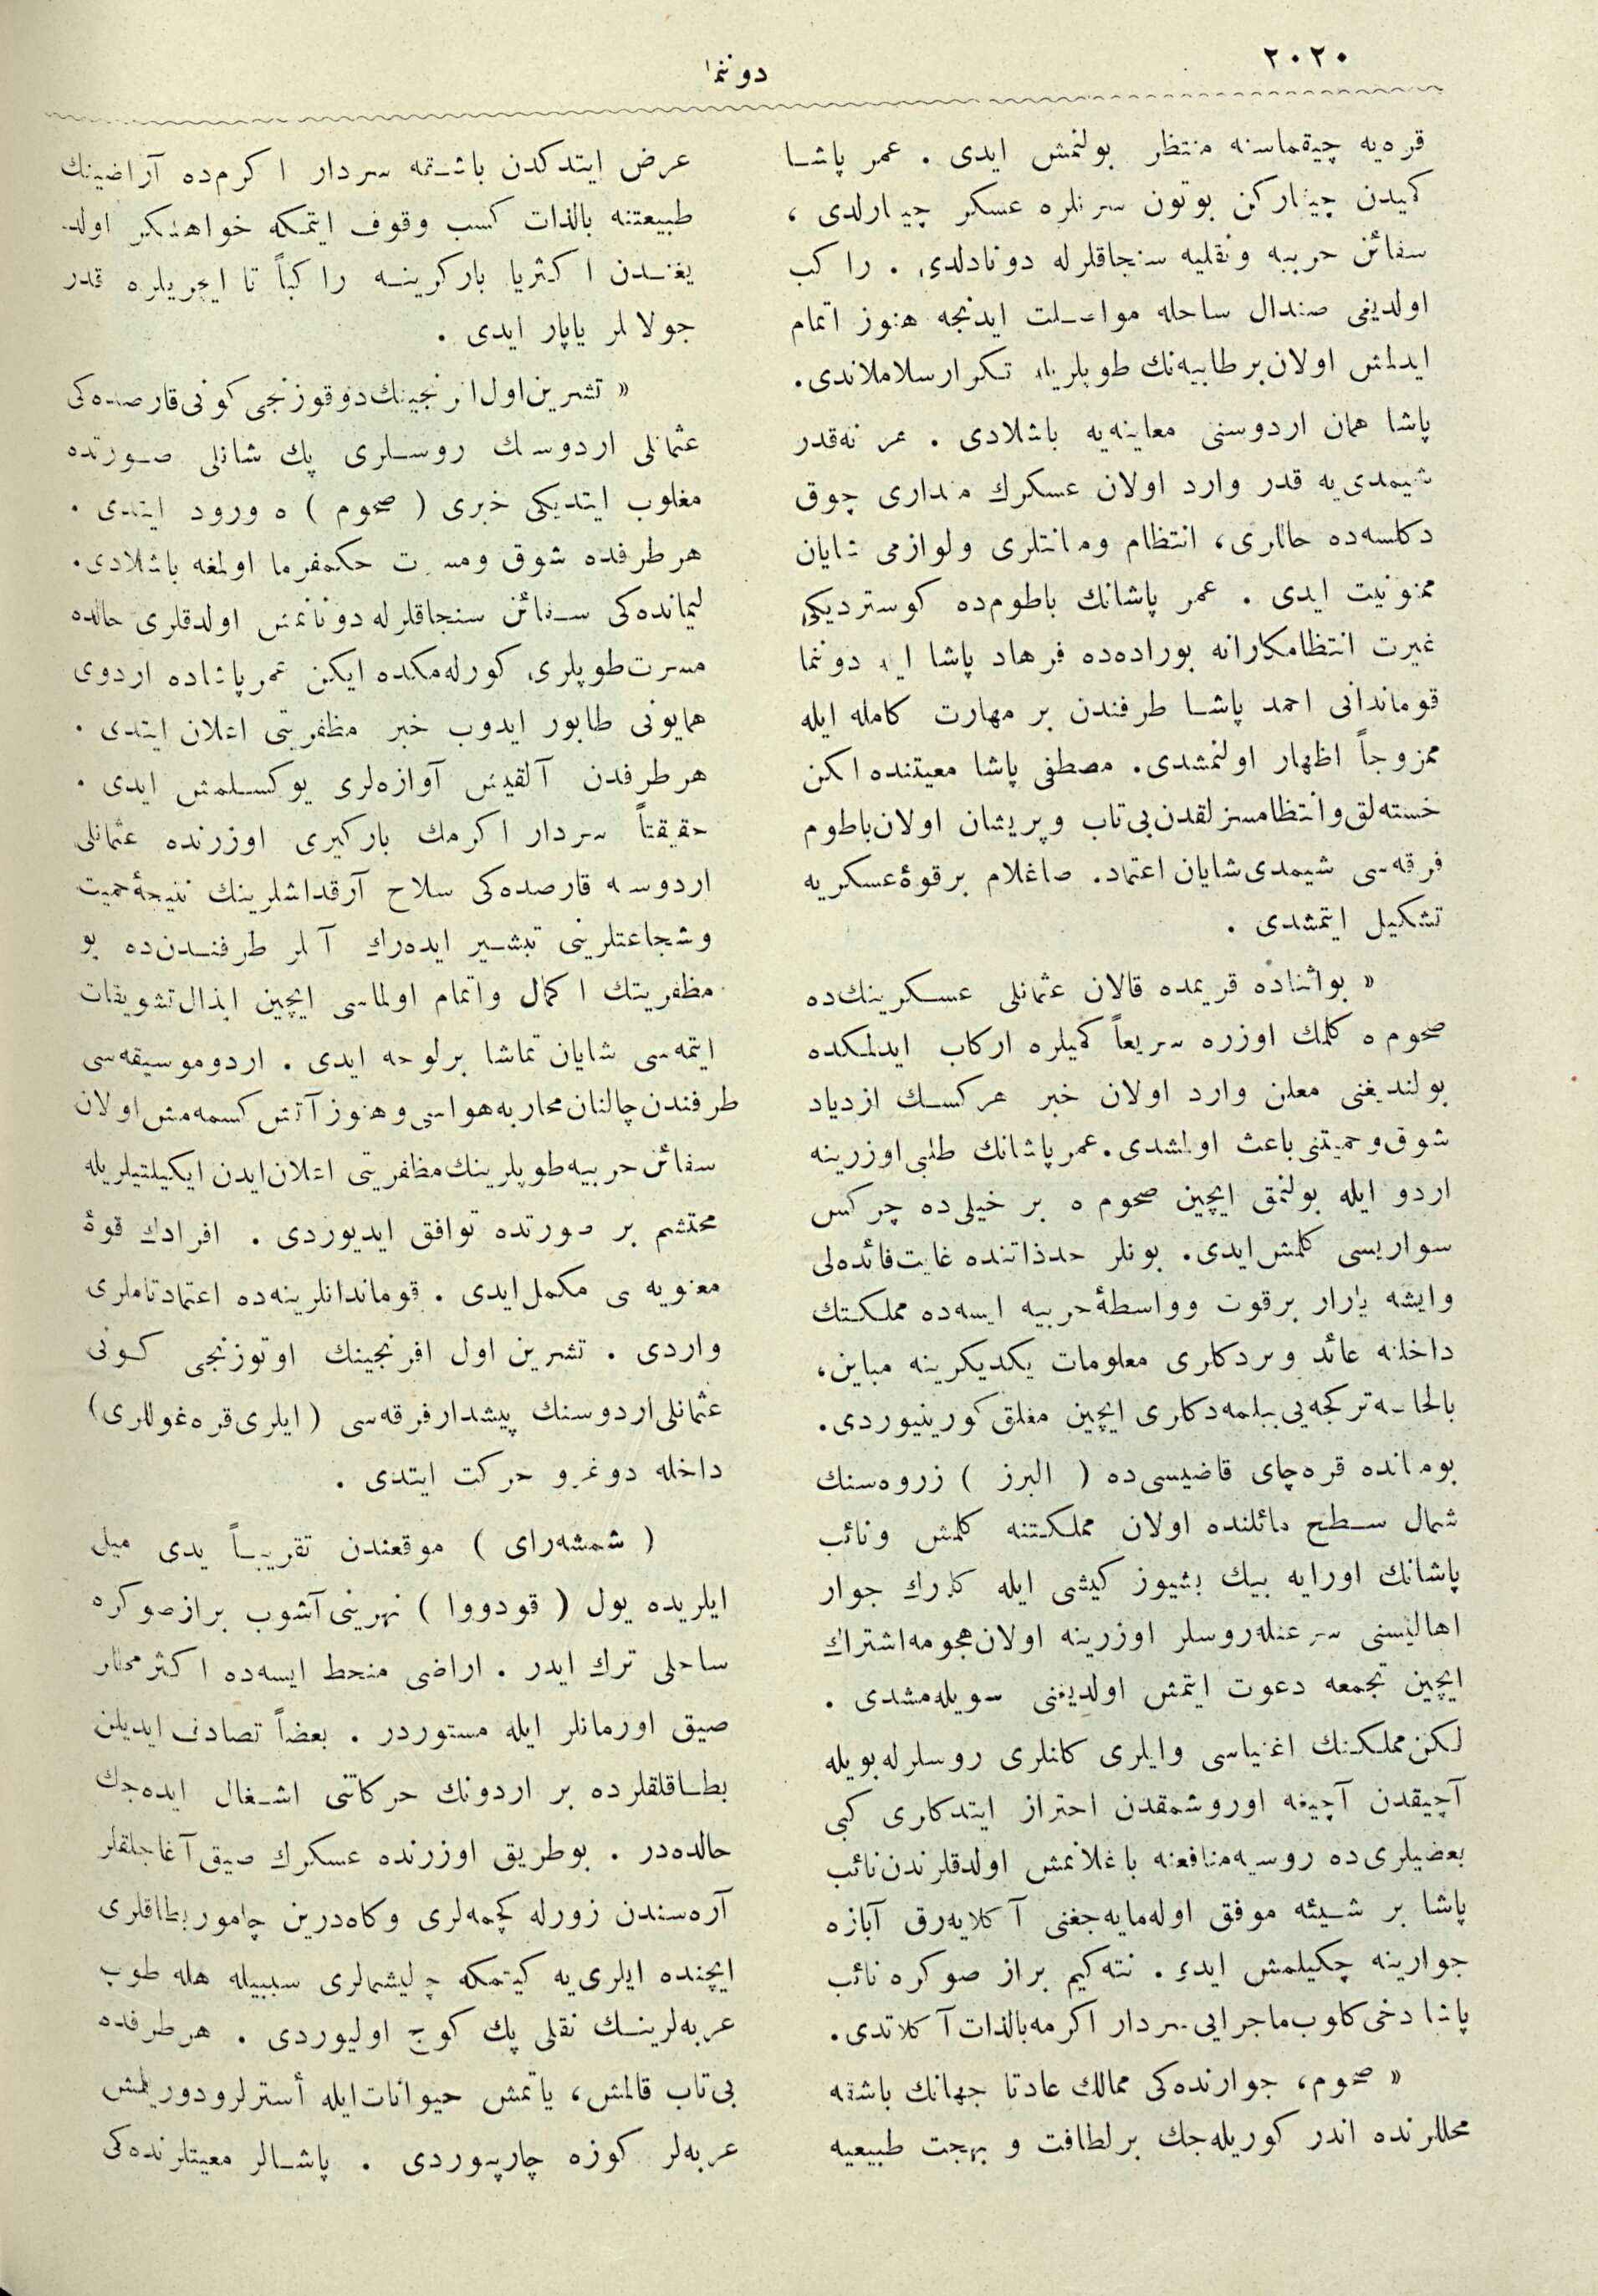 ٢٠٢٠
دوننما
قره‌یه چیقماسنه منتظر بولنمش ایدی . عمر پاشا
كمیدن چیقاركن بوتون سرنلره عسكر چیقارلدی ،
سفائن حربیه ونقلیه سنجاقلرله دونادلدی . راكب
اولدیغی صندال ساحله مواصلت ایدنجه هنوز اتمام
ایدلمش اولان برطابیه‌نك طوپلریله تكرار سلاملاندی.
پاشا همان اردوسنی معاینه‌یه باشلادی . هر نه‌قدر
شیمدی‌یه قدر وارد اولان عسكرك مقداری چوق
دكلسه‌ده حاللری، انتظام ومتانتلری ولوازمی شایان
ممنونیت ایدی . عمر پاشانك باطوم‌ده كوستردیكی
غیرت انتظامكارانه بوراده‌ده فرهاد پاشا ایله دوننما
قوماندانی احمد پاشا طرفندن بر مهارت كامله ایله
ممزوجاً اظهار اولنمشدی. مصطفی پاشا معیتنده ایكن
خسته‌لق وانتظامسزلقدن بی‌تاب وپریشان اولان باطوم
فرقه‌سی شیمدی شایان اعتماد. صاغلام برقوهٔ عسكریه
تشكیل ایتمشدی .
« بواثناده قریمده قالان عثمانلی عسكرینك‌ده
صحوم ه كلمك اوزره سریعاً كمیلره اركاب ایدلمكده
بولندیغنی معلن وارد اولان خبر هركسك ازدیاد
شوق وحمیتنی باعث اولمشدی. عمر پاشانك طلبی اوزرینه
اردو ایله بولنمق ایچین صحوم ه بر خیلی‌ده چركس
سواریسی كلمش ایدی. بونلر حدذاتنده غایت فائده‌لی
وایشه یارار برقوت وواسطهٔ حربیه ایسه‌ده مملكتك
داخلنه عائد ویردكلری معلومات یكدیكرینه مباین،
بالخاصه تركجه‌یی بیلمه‌دكلری ایچین مغلق كورینیوردی.
بومیانده قره‌چای قاضیسی‌ده ( البرز ) زروه‌سنك
شمال سطح مائلنده اولان مملكتنه كلمش ونائب
پاشانك اورایه بیك بشیوز كیشی ایله كله‌رك جوار
اهالیسنی سرعتله روسلر اوزرینه اولان هجومه اشتراك
ایچین تجمعه دعوت ایتمش اولدیغنی سویله‌مشدی .
لكن مملكتك اغنیاسی وایلری كلنلری روسلرله بویله
آچیقدن آچیغه اوروشمقدن احتراز ایتدكلری كبی
بعضیلری‌ده روسیه منافعنه باغلانمش اولدقلرندن نائب
پاشا بر شیئه موفق اوله‌مایه‌جغنی آكلایه‌رق آبازه
جوارینه چكیلمش ایدی. نته‌كیم براز صوكره نائب
پاشا دخی كلوب ماجرایی سردار اكرمه بالذات آكلاتدی.
« صحوم، جوارنده‌كی ممالك عادتا جهانك باشقه
محللرنده اندر كوریله‌جك بر لطافت و بهجت طبیعیه
عرض ایتدكدن باشقه سردار اكرم‌ده آراضینك
طبیعتنه بالذات كسب وقوف ایتمكه خواهشكر اولد‍
یغندن اكثریا باركیرینه راكباً تا ایچریلره قدر
جولانلر یاپار ایدی .
« تشرین‌اول افرنجینك دوقوزنجی كونی قارصده‌كی
عثمانلی اردوسنك روسلری پك شانلی صورتده
مغلوب ایتدیكی خبری ( صحوم ) ه ورود ایتدی .
هرطرفده شوق ومسرت حكمفرما اولمغه باشلادی.
لیمانده‌كی سفائن سنجاقلرله دونانمش اولدقلری حالده
مسرت طوپلری كورله‌مكده ایكن عمرپاشاده اردوی
همایونی طابور ایدوب خبر مظفریتی اعلان ایتدی .
هر طرفدن آلقیش آوازه‌لری یوكسلمش ایدی .
حقیقتاً سردار اكرمك باركیری اوزرنده عثمانلی
اردوسنه قارصده‌كی سلاح آرقداشلرینك نتیجهٔ حمیت
وشجاعتلرینی تبشیر ایده‌رك آنلر طرفندن‌ده بو
مظفریتك اكمال واتمام اولماسی ایچین ابذال تشویقات
ایتمه‌سی شایان تماشا برلوحه ایدی . اردوموسیقه‌سی
طرفندن چالنان محاربه هواسی وهنوز آتش كسمه‌مش اولان
سفائن حربیه طوپلرینك مظفریتی اعلان ایدن ایكیلتیلریله
محتشم بر صورتده توافق ایدیوردی . افرادك قوهٔ
معنویه سی مكمل ایدی . قوماندانلرینه‌ده اعتماد تاملری
واردی . تشرین اول افرنجینك اوتوزنجی كونی
عثمانلی اردوسنك پیشدار فرقه‌سی (ایلری قره‌غوللری)
داخله دوغرو حركت ایتدی .
( شمشه‌رای ) موقعندن تقریباً یدی میل
ایلریده یول ( قودووا ) نهرینی آشوب براز صوكره
ساحلی ترك ایدر . اراضی منحط ایسه‌ده اكثر محللر
صیق اورمانلر ایله مستوردر . بعضاً تصادف ایدیلن
بطاقلقلرده بر اردونك حركاتنی اشغال ایده‌جك
حالده‌در . بوطریق اوزرنده عسكرك صیق آغاجلقلر
آره‌سندن زورله كچمه‌لری وكاه درین چامور بطاقلری
ایچنده ایلری‌یه كیتمكه چالیشمالری سببیله هله طوپ
عربه‌لرینك نقلی پك كوج اولیوردی . هر طرفده
بی‌تاب قالمش، یاتمش حیوانات ایله أسترلر ودوریلمش
عربه‌لر كوزه چارپیوردی . پاشالر معیتلرنده‌كی